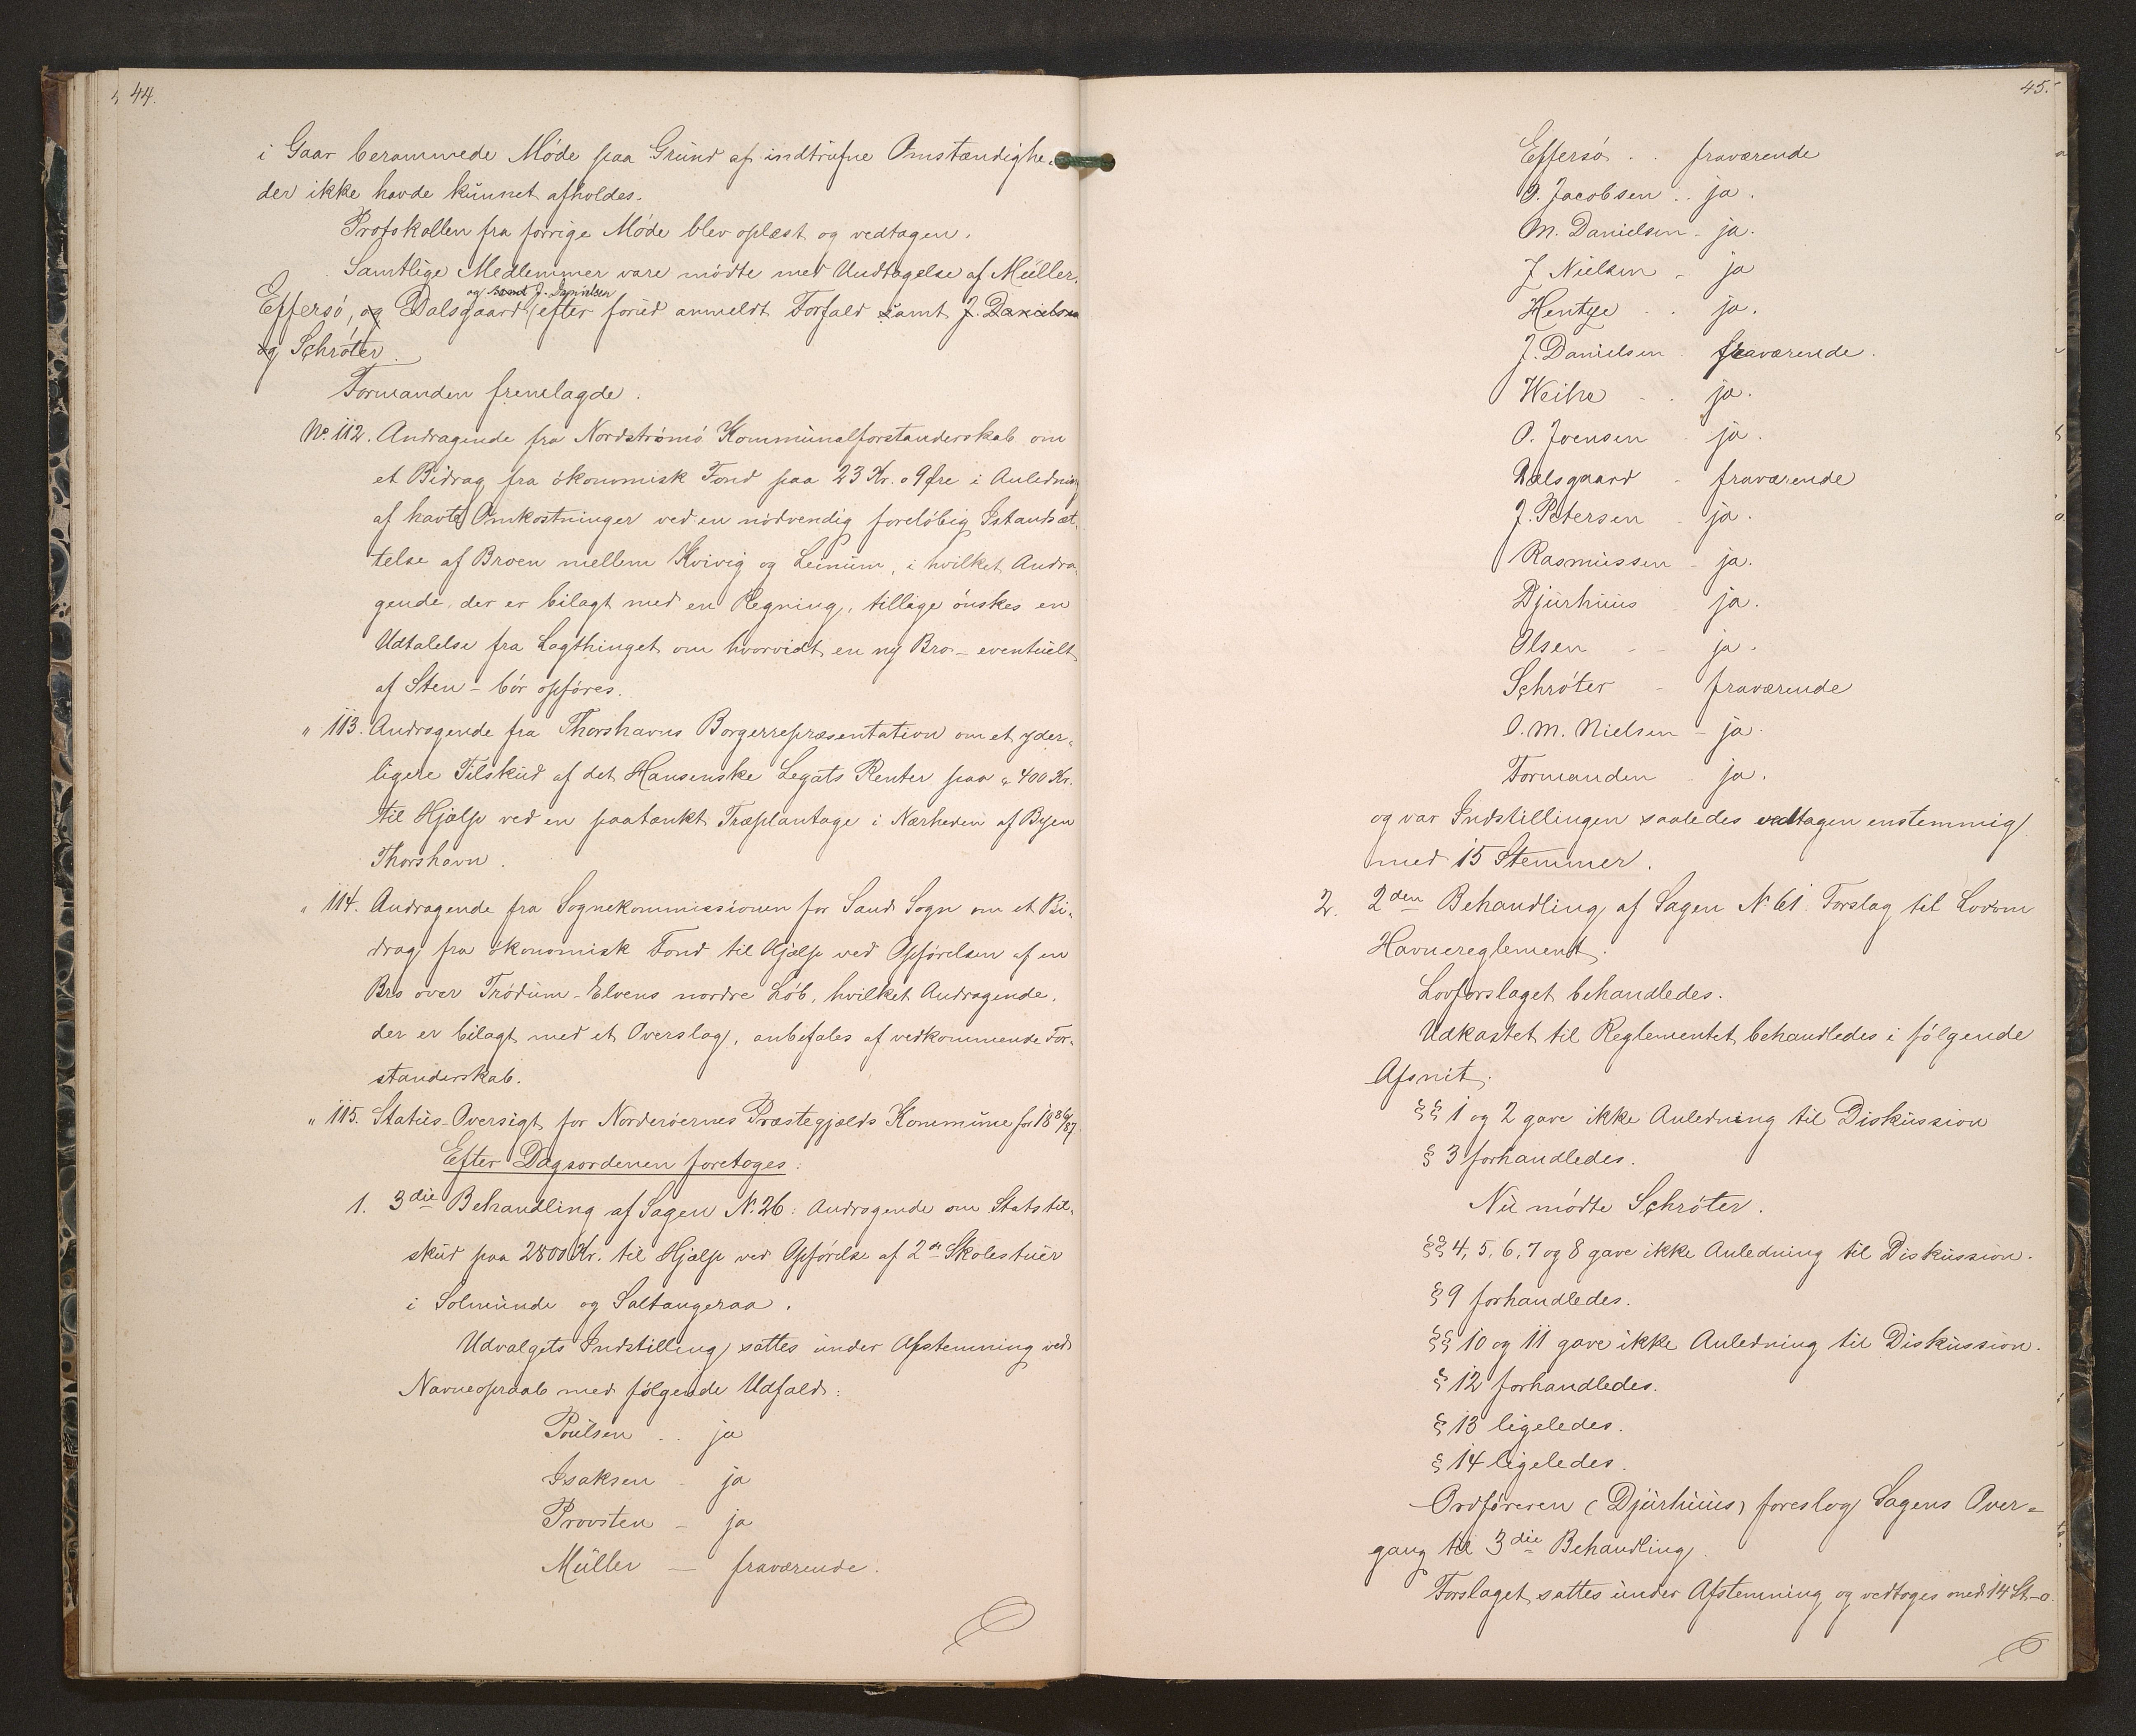 44.
i Gaar berammede Møde paa Grund af indtrufne Omstændighe-
der ikke havde kunnet afholdes.
Protokollen fra forrige Møde blev oplæst og vedtagen.
Samtlige Medlemmer vare mødte med Undtagelse af Müller,
og samt J. Danielsen
Effersø, og Dalsgaard (efter forud anmeldt Forfald samt J. Danielsen
og Schrøter.
Formanden fremlagde.
No. 112. Andragende fra Nordstrømø Kommunalforstanderskab om
et Bidrag fra økonomisk Fond paa 23 Kr. 09 Øre i Anledning
af havte Omkostninger ved en nødvendig foreløbig Istandsæt-
telse af Broen mellem Kvivig og Leinum, i hvilket Andra-
gende, der er bilagt med en Regning, tillige ønskes en
Udtalelse fra Lagthinget om hvorvidt en ny Bro - eventuelt
af Sten - bør opføres.
" 113. Andragende fra Thorshavns Borgerrepræsentation om et yder-
ligere Tilskud af det Hansenske Legats Renter paa c. 400 Kr.
til Hjælp ved en paatænkt Træplantage i Nærheden af Byen
Thorshavn.
" 114. Andragende fra Sognekommissionen for Sand Sogn om et Bi-
drag fra økonomisk Fond til Hjælp ved Opførelsen af en
Bro over Trødum-Elvens nordre Løb, hvilket Andragende,
der er bilagt med et Overslag, anbefales af vedkommende For-
standerskab.
" 115. Status-Oversigt for Norderøernes Præstegjælds Kommune for 1886/87.
Efter Dagsordenen foretoges:
1. 3die Behandling af Sagen No. 26: Andragende om Statstil-
skud paa 2800 Kr. til Hjælp ved Opførelse af 2de Skolestuer
i Solmunde og Saltangeraa.
Udvalgets Indstilling sattes under Afstemning ved
Navneopraab med følgende Udfald:
Poulsen .. ja
Isaksen - ja
Provsten - ja
Müller - fraværende.
45.
Effersø . . fraværende
J. Jacobsen .. ja.
M. Danielsen - ja.
J Nielsen - ja
Hentze . . ja.
J. Danielsen . fraværende.
Weihe - . ja.
O. Joensen - ja.
Dalsgaard - fraværende
J. Petersen . ja.
Rasmussen - ja.
Djurhuus - ja.
Olsen - - ja.
Schrøter - fraværende
O. M. Nielsen - ja.
Formanden - ja.
og var Indstillingen saaledes vedtagen enstemmig
med 15 Stemmer.
2. 2den Behandling af Sagen No 61. Forslag til Lov om
Havnereglement.
Lovforslaget behandledes.
Udkastet til Reglementet behandledes i følgende
Afsnit:
§§ 1 og 2 gave ikke Anledning til Diskussion
§ 3 forhandledes.
Nu mødte Schrøter.
§§ 4, 5, 6, 7 og 8 gave ikke Anledning til Diskussion.
§ 9 forhandledes.
§§ 10 og 11 gave ikke Anledning til Diskussion.
§ 12 forhandledes.
§ 13 ligeledes.
§ 14 ligeledes.
Ordføreren (Djurhuus) foreslog Sagens Over-
gang til 3die Behandling.
Forslaget sattes under Afstemning og vedtoges med 14 St.